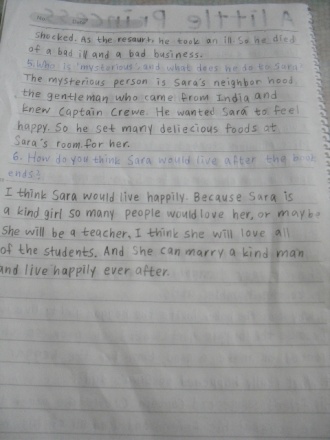 A Little Princess
shocked. As the resault, he took an ill. So he died
of a bad ill and a bad business.
5. Who is 'mysterious', and what does he do to Sara?
The mysterious person is Sara's neighbor hood,
the gentleman who came from India and
knew Captain Crewe. He wanted Sara to feel
happy. So he set many deliecious foods at
Sara's room for her.
6. How do you think Sara would live after the book
ends?
I think Sara would live happily. Because Sara is
a kind girl so many people would love her, or maybe
She will be a teacher. I think she will love all
of the students. And She can marry a kind man
and live happily ever after.